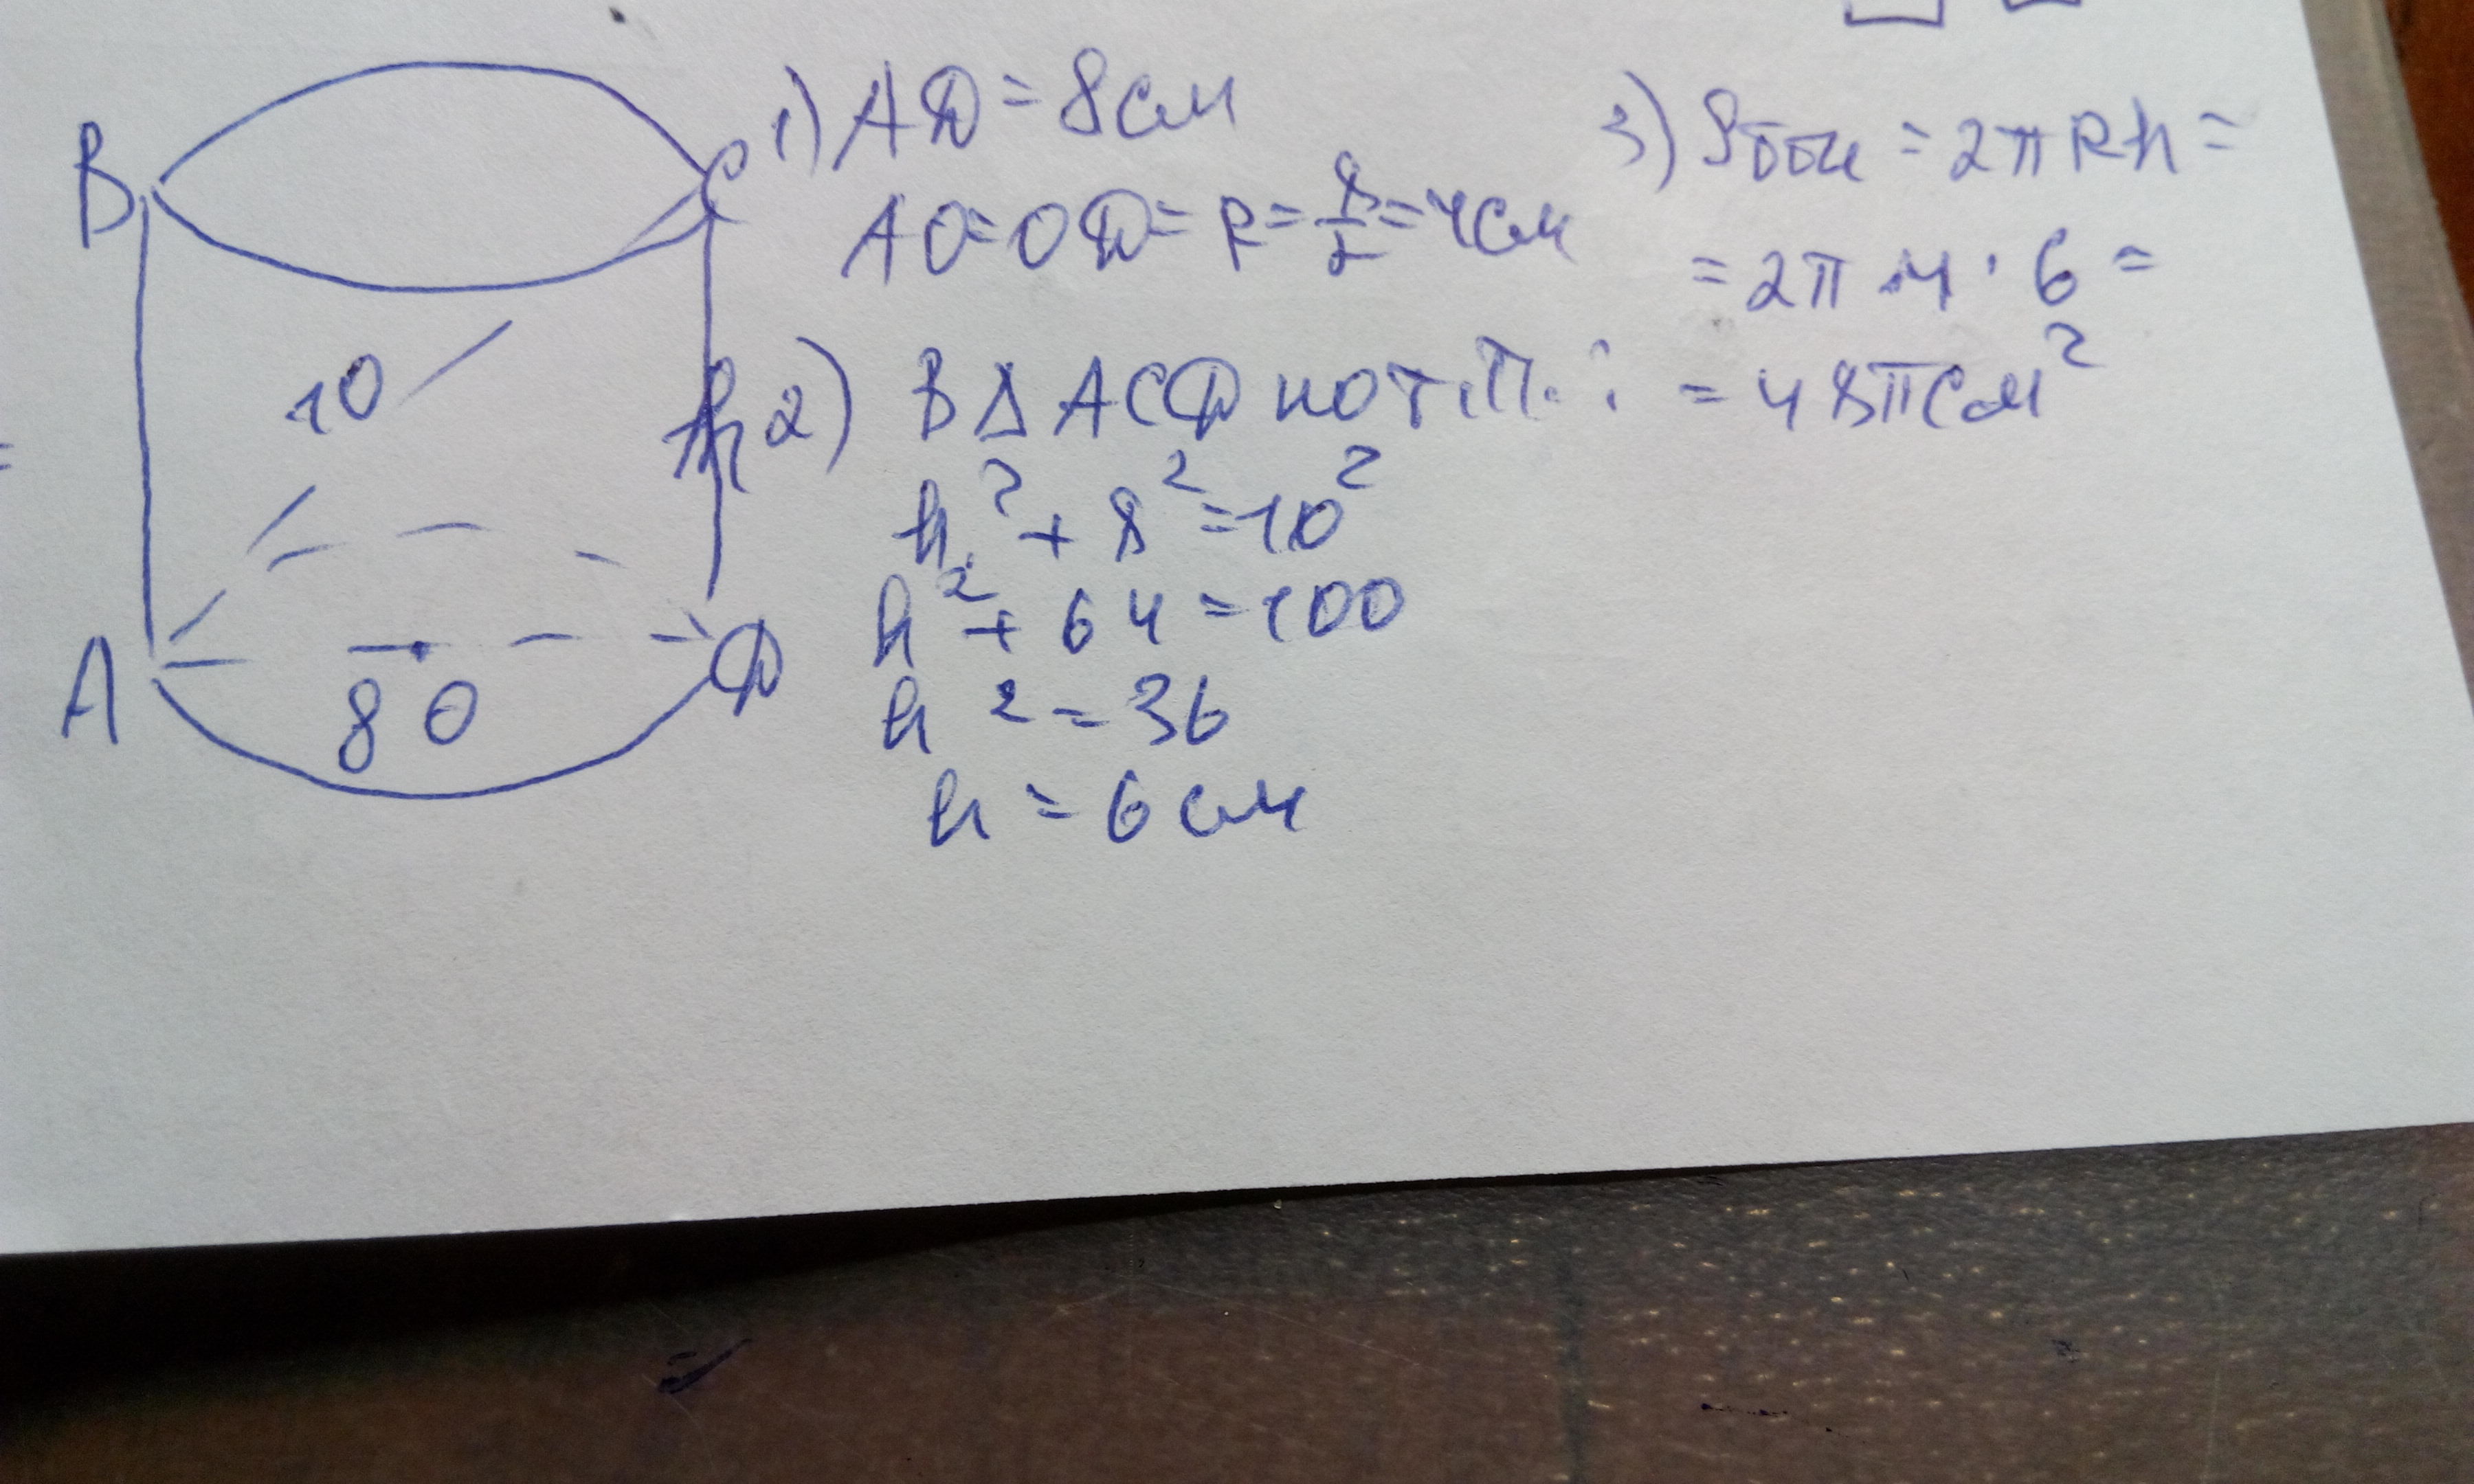 B
C
10
h
A
8 0
D
=
1) AD = 8 см
AO = OD = R = 8/2 = 4 см
2) В Δ ACD по т.П.:
h² + 8² = 10²
h² + 64 = 100
h² = 36
h = 6 см
3) Sбок = 2πRh =
= 2π · 4 · 6 =
= 48π см²